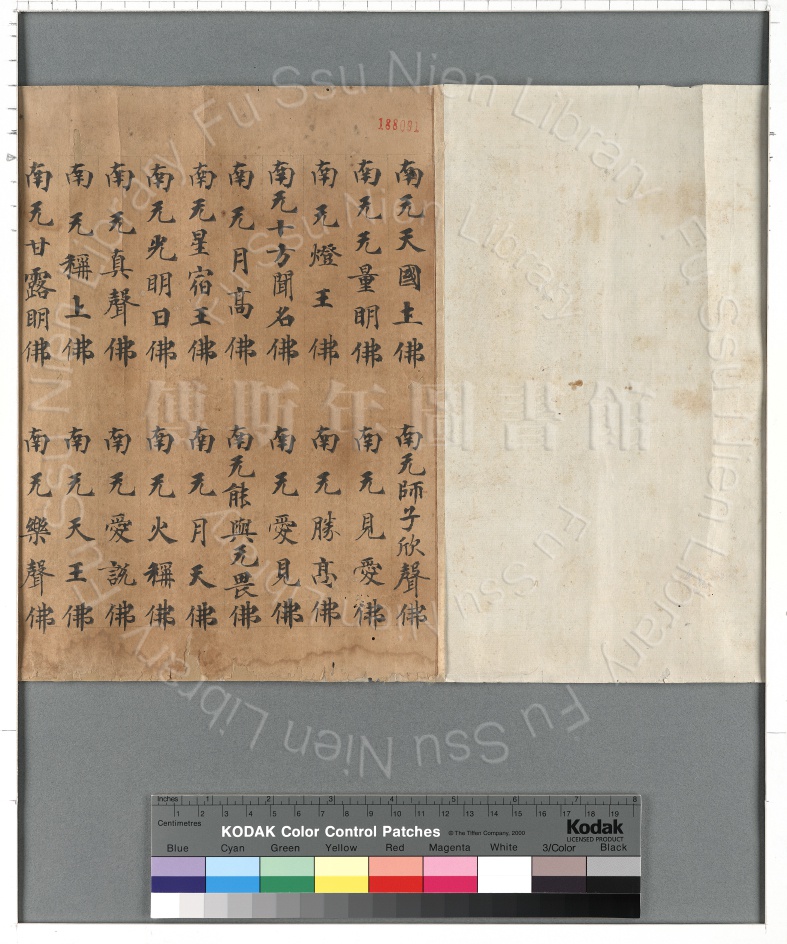 188091
南无天國土佛 南无師子欣聲佛
南无无量明佛 南无見愛佛
南无燈王佛 南无勝髙佛
南无十方聞名佛 南无愛見佛
南无月髙佛 南无能與无畏佛
南无星宿王佛 南无月天佛
南无光明日佛 南无火稱佛
南无真聲佛 南无愛說佛
南无稱上佛 南无天王佛
南无甘露明佛 南无樂聲佛
傅斯年圖書館
Fu Ssu Nien Library
Fu Ssu Nien Library
Fu Ssu Nien Library
Fu Ssu Nien Library
Inches 1 2 3 4 5 6 7 8
Centimetres 1 2 3 4 5 6 7 8 9 10 11 12 13 14 15 16 17 18 19
KODAK Color Control Patches © The Tiffen Company, 2000 Kodak
LICENSED PRODUCT
Blue Cyan Green Yellow Red Magenta White 3/Color Black